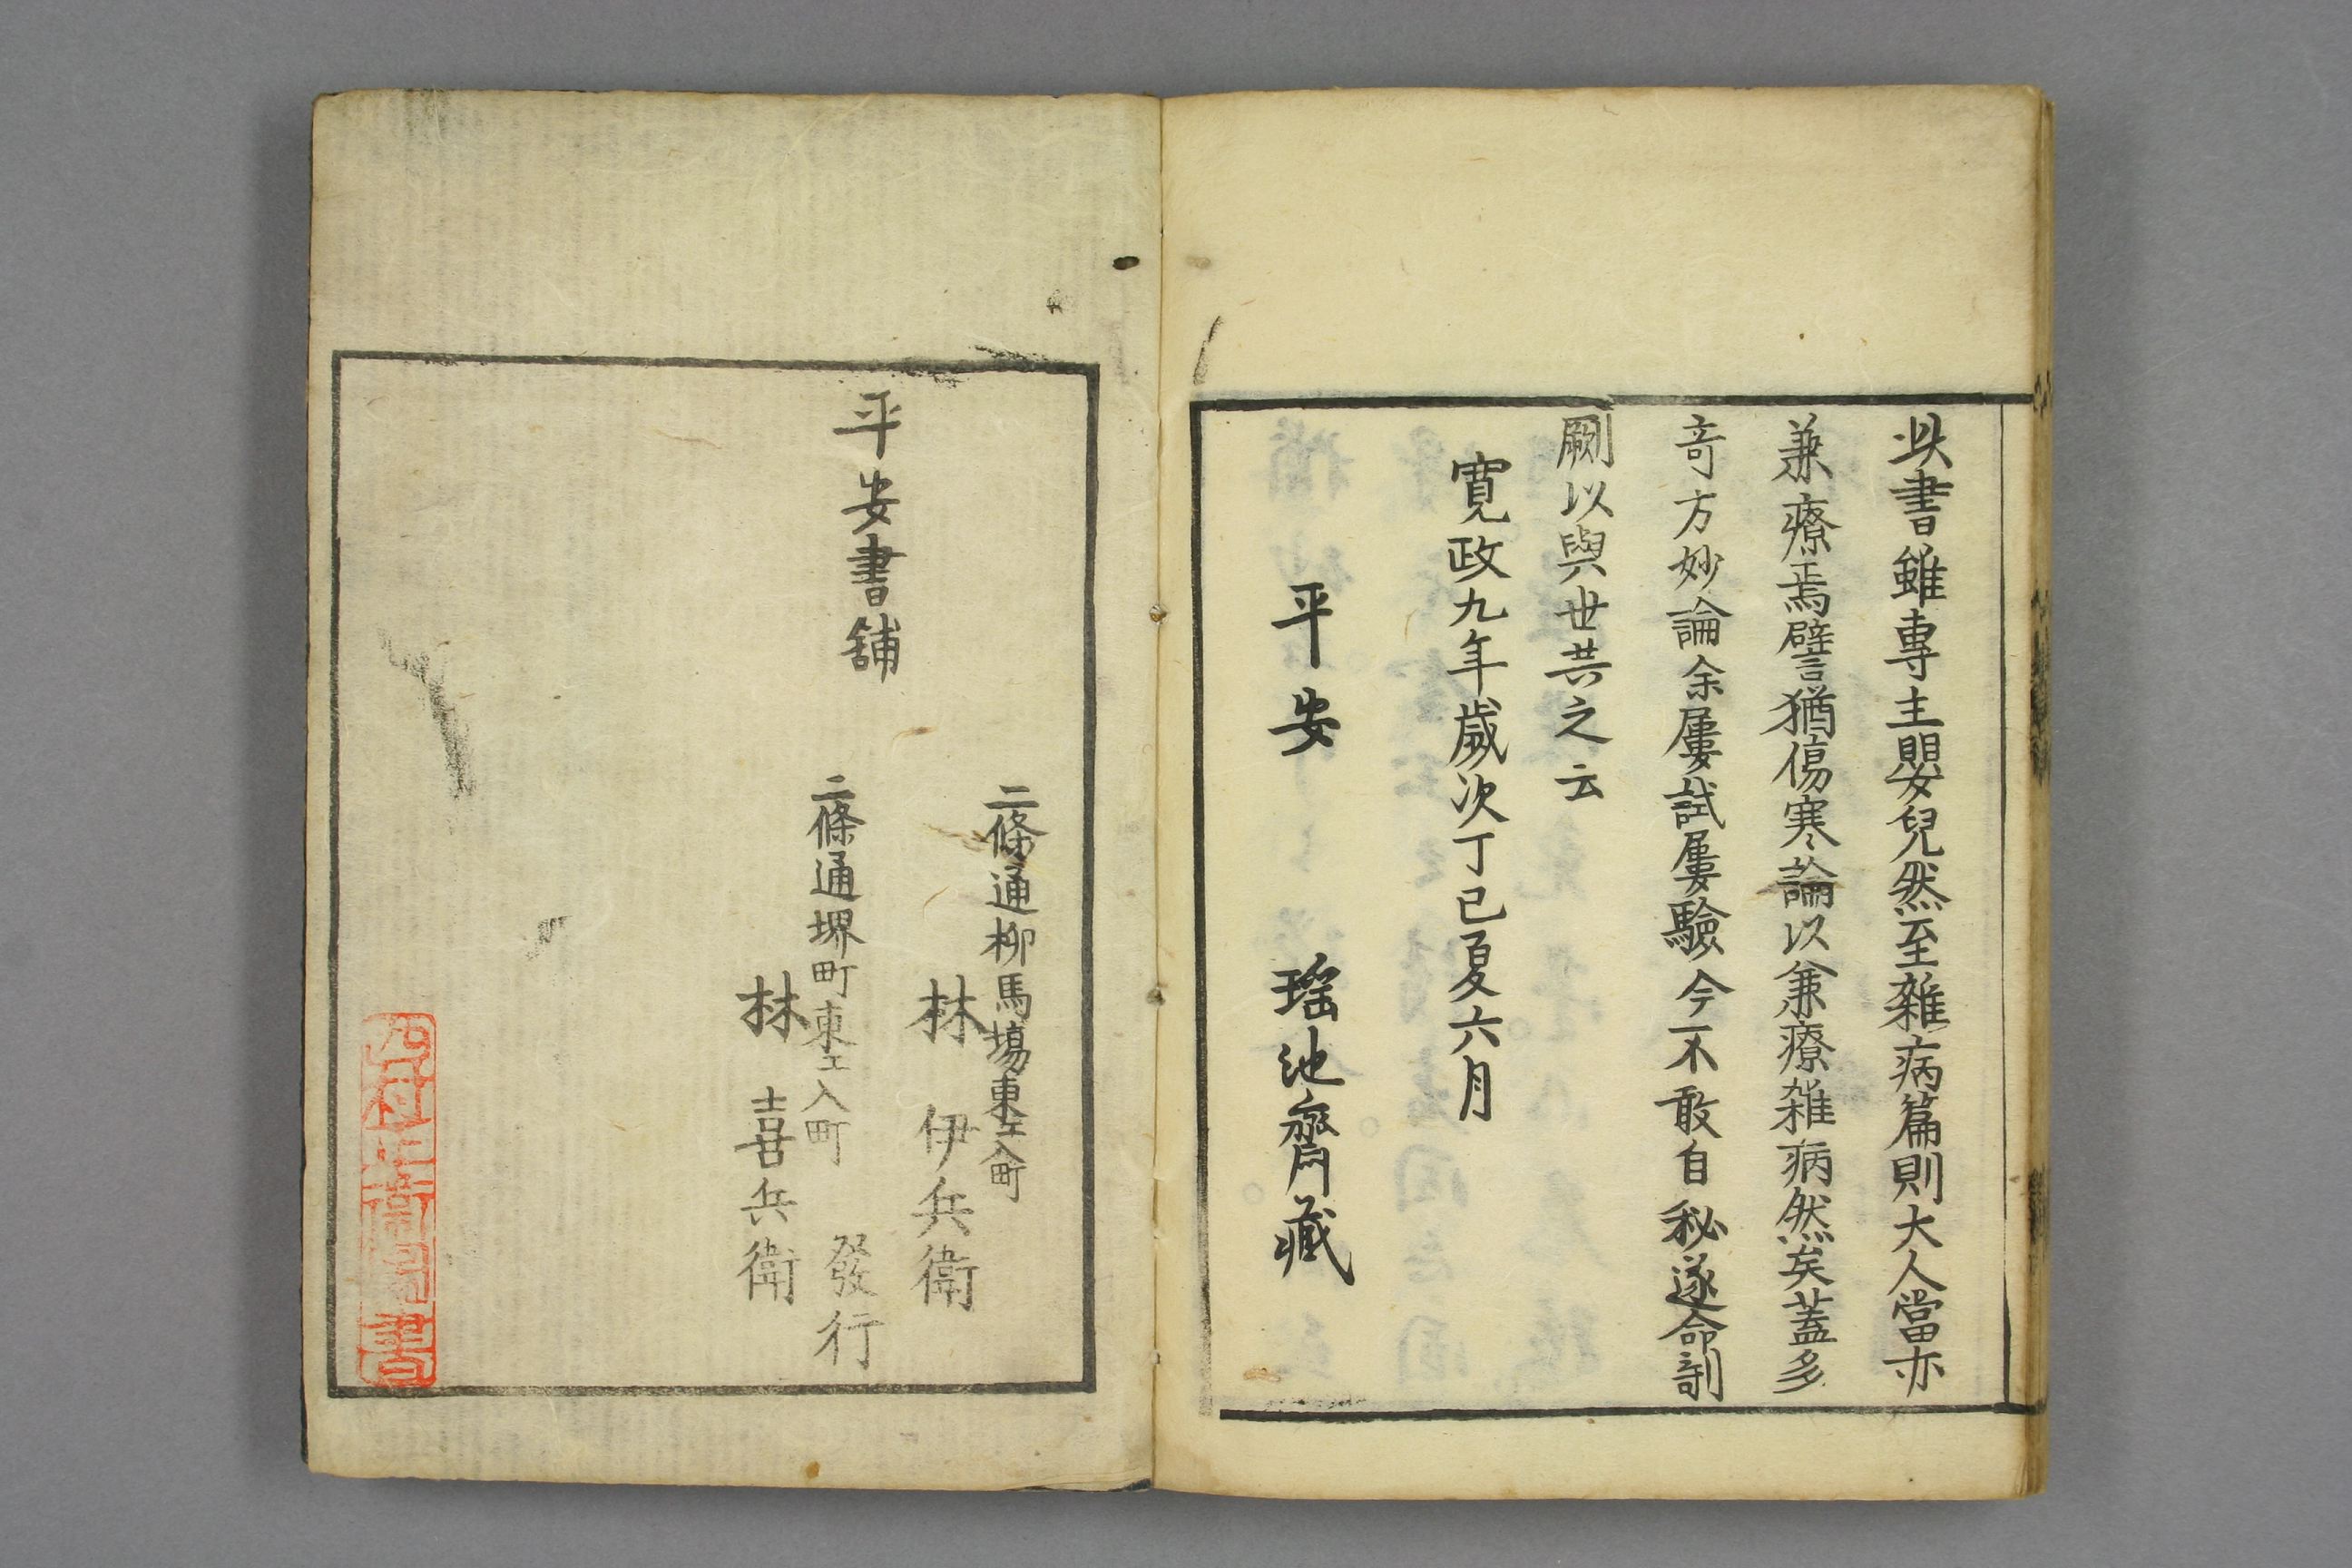 此書雖專主嬰兒然至雜病篇則大人當亦
兼療焉譬猶傷寒論以兼療雜病然矣蓋多
竒方妙論余屢試屢驗今不敢自秘遂命剞
劂以與世共之云
寛政九年歲次丁巳夏六月
平安 瑶池齋藏
二條通柳馬塲東エ入町
林 伊兵衛
平安書舖 發行
二條通堺町東エ入町
林 喜兵衛